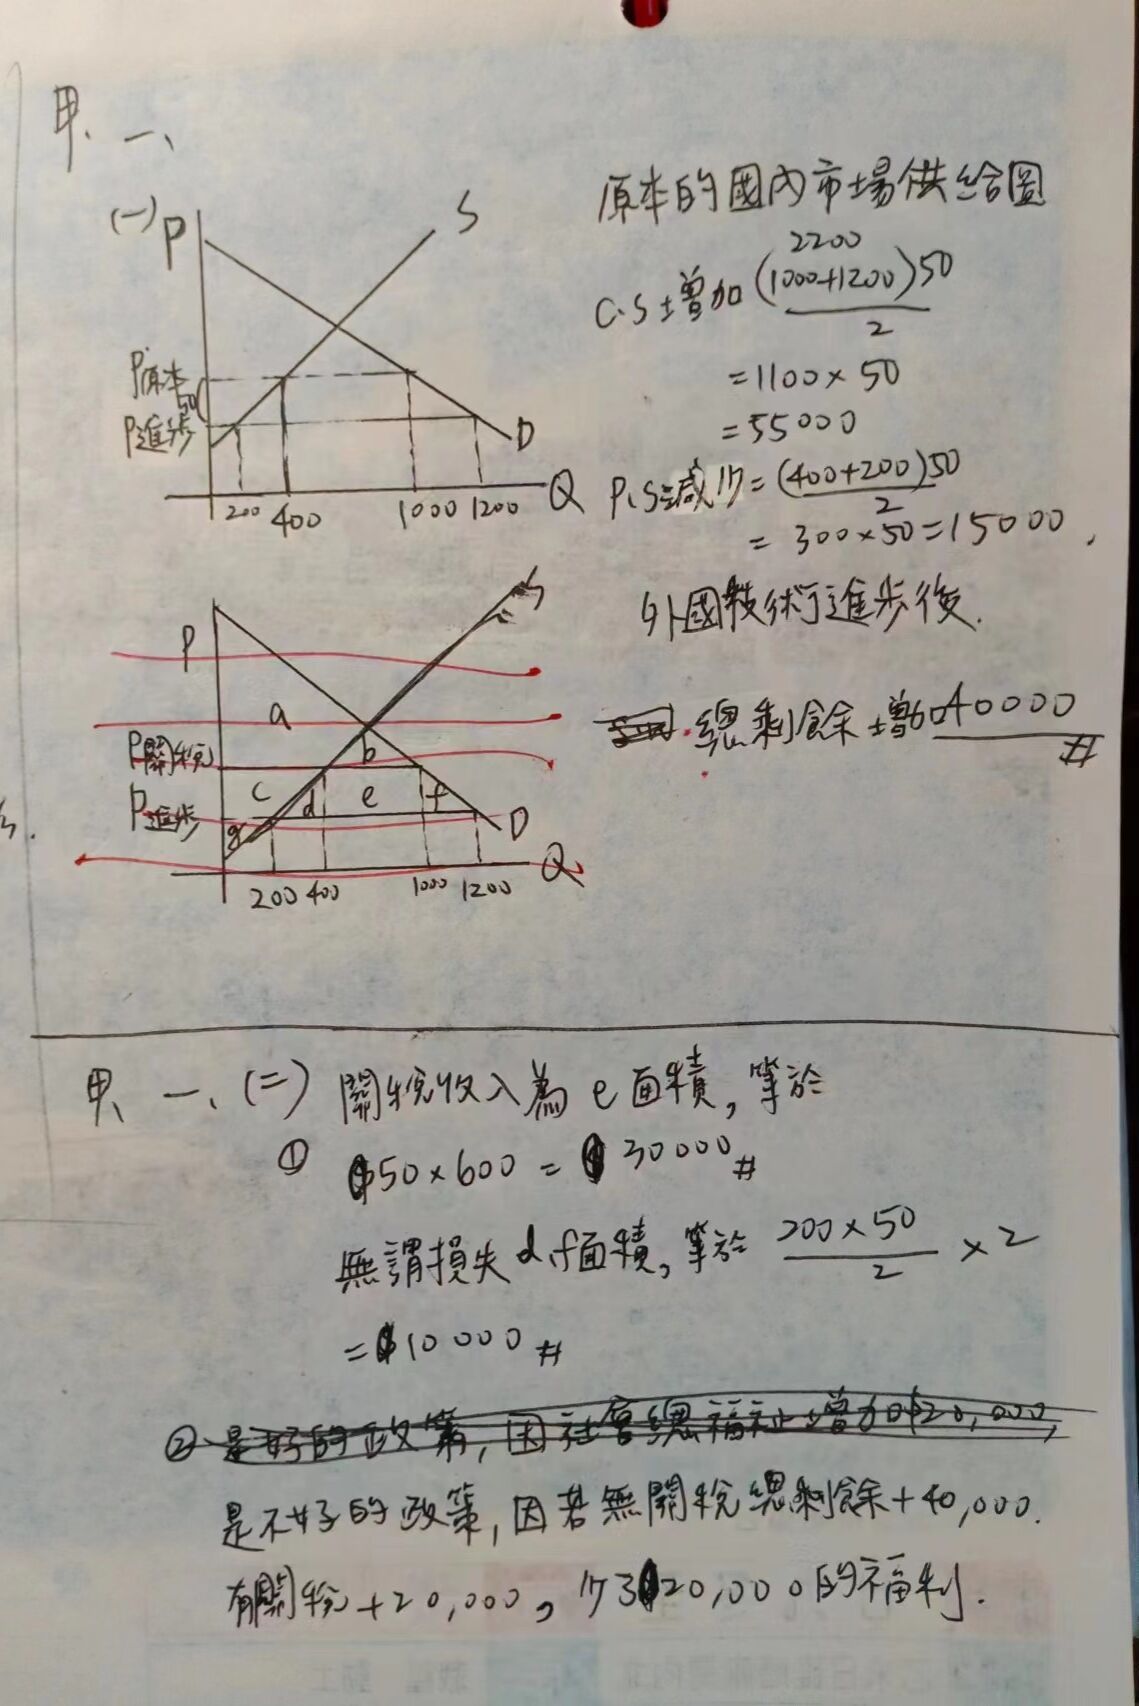 甲、一、
(一)
P
S
P原本
50
P進步
D
Q
200 400 1000 1200
原本的國內市場供給圖
2200
C.S增加 (1000+1200)50
2
=1100×50
=55000
P.S減少= (400+200)50
2
= 300×50=15000.
外國技術進步後.
總剩餘增加40000 #
P
S
a
P關稅
b
c d e f
P進步
g
D
Q
200 400 1000 1200
甲、一、(二) 關稅收入為e面積,等於
① $50×600 = $30000 #
無謂損失d、f面積,等於 200×50 × 2
2
=$10000 #
② 是好的政策,因社會總福祉增加$20,000,
是不好的政策,因若無關稅總剩餘+40,000.
有關稅+20,000,少了20,000的福利.